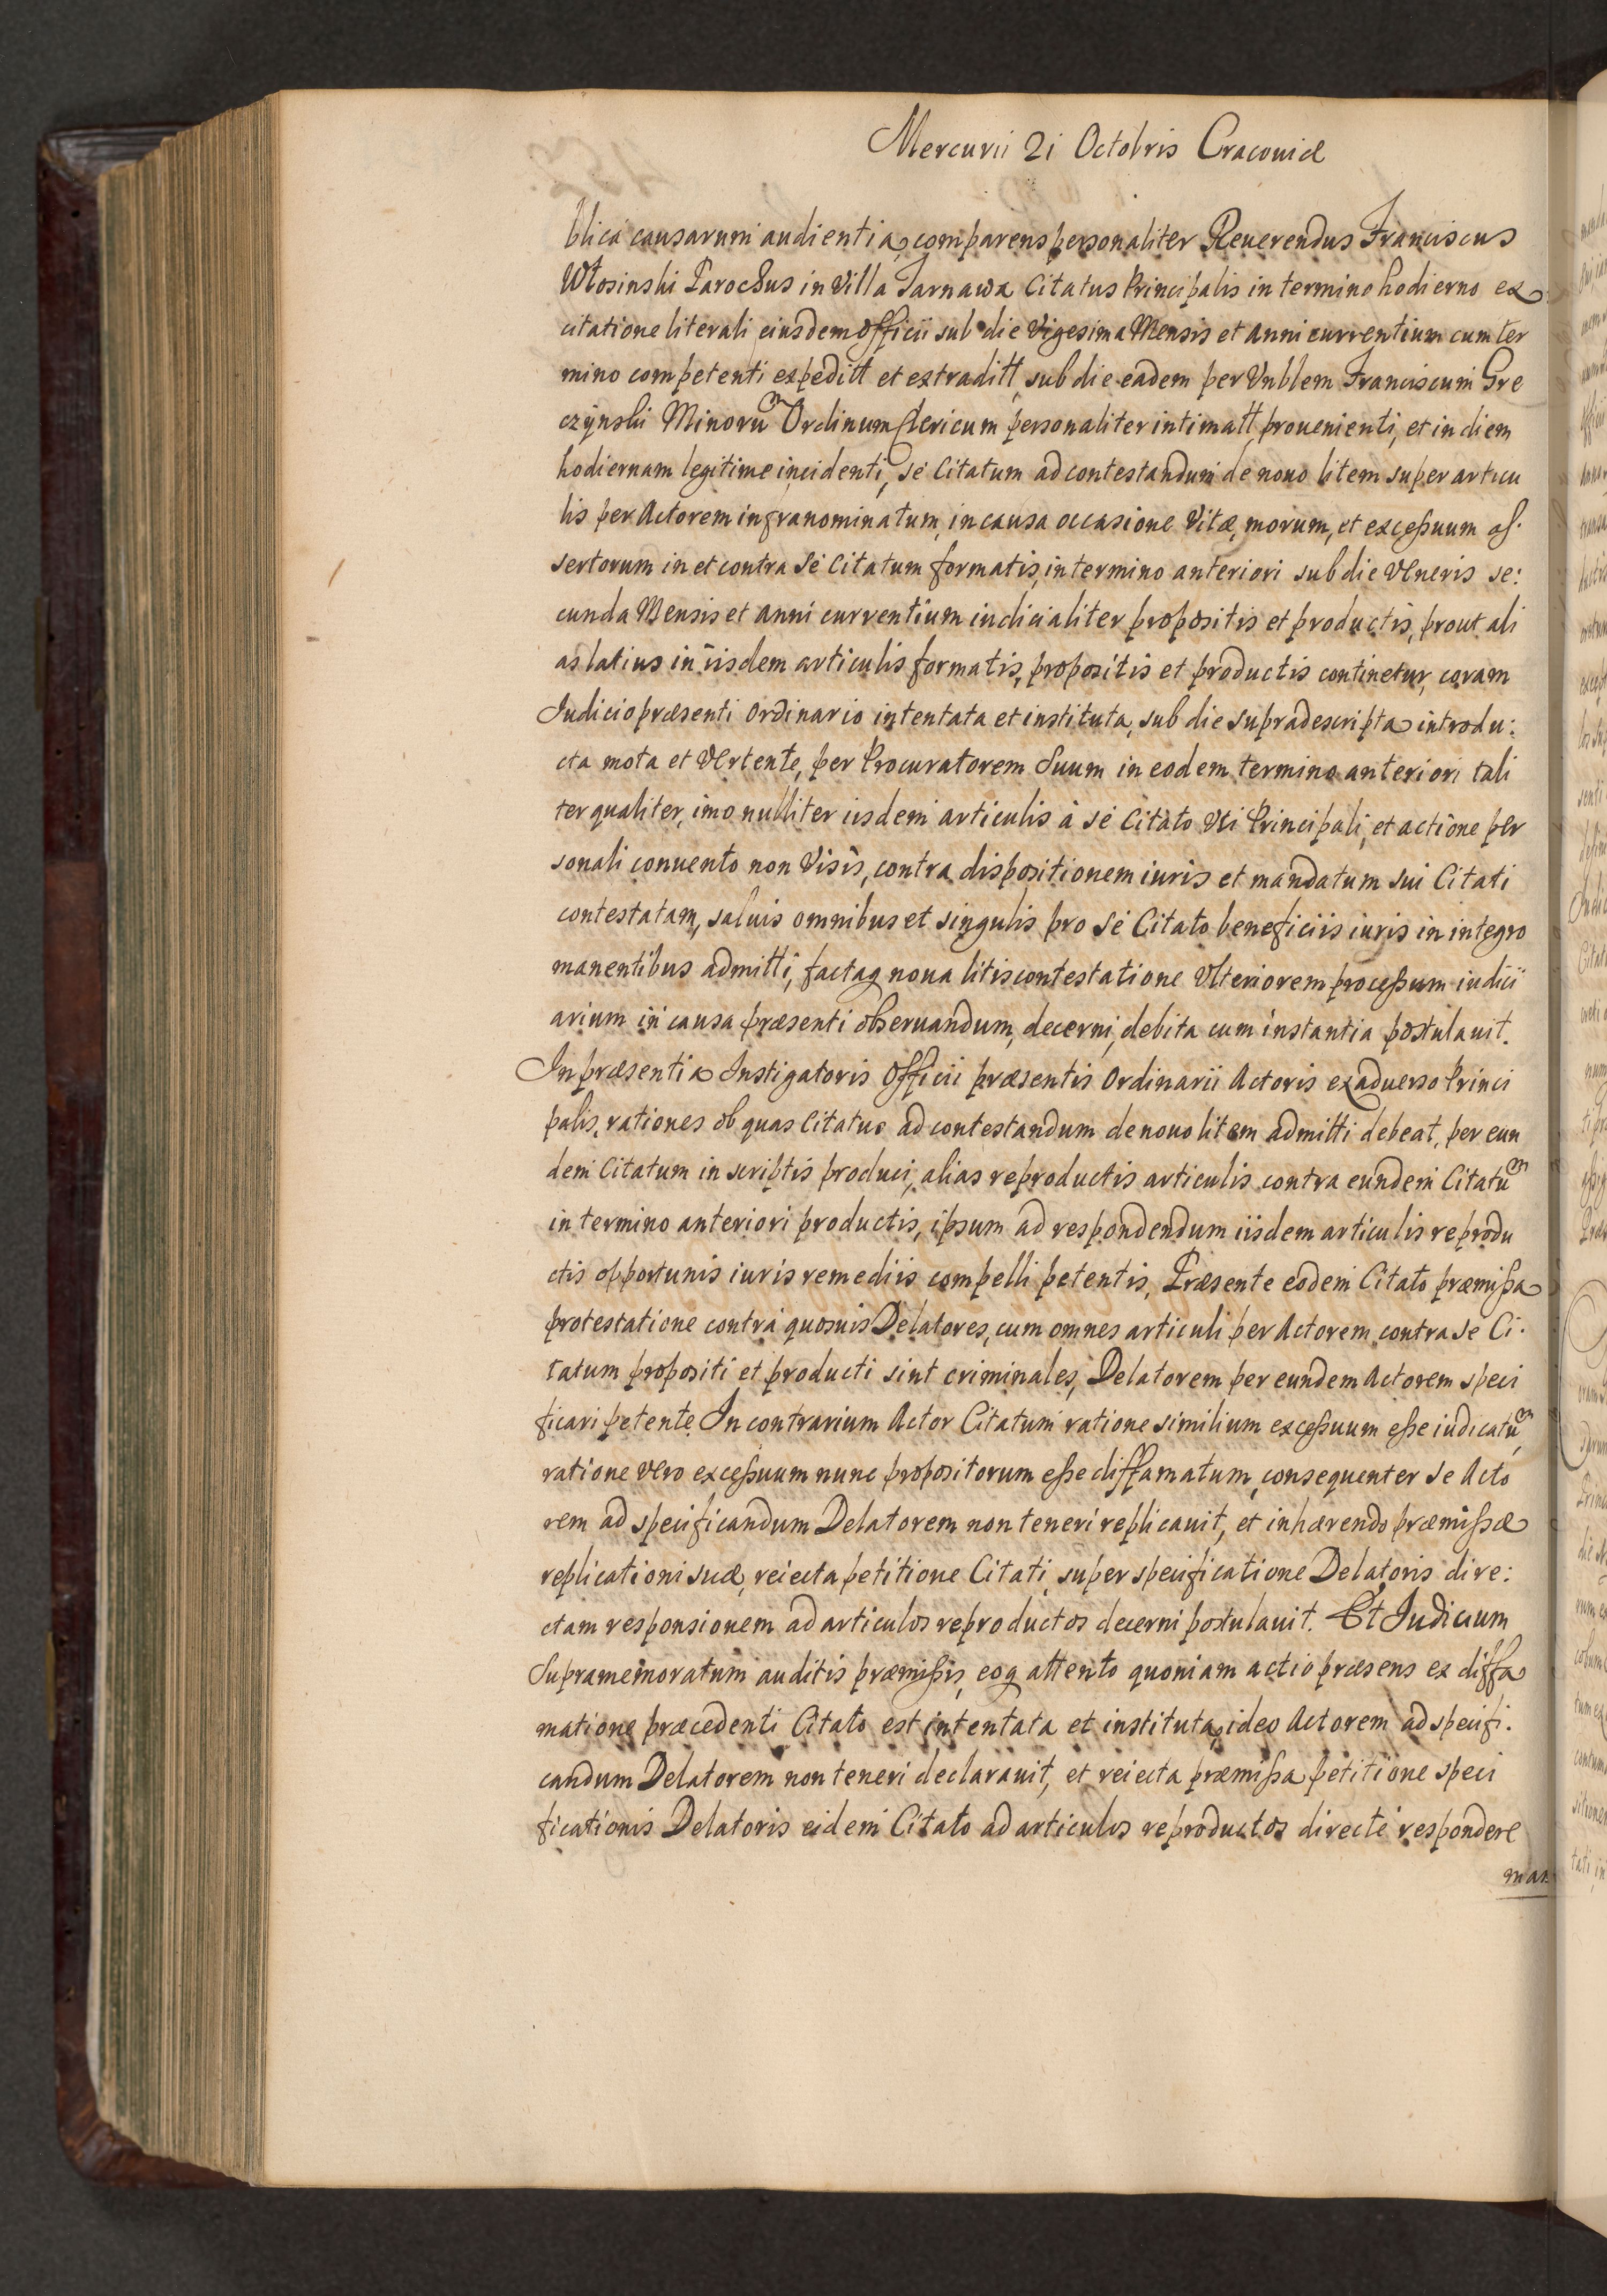 Mercurii 21 Octobris Cracouiæ
blica causarum audientia, comparens personaliter Reuerendus Franciscus
Wlosinski Parochus in Villa Tarnawa Citatus Principalis in termino hodierno ex
citatione literali eiusdem Officii sub die Vigesima Mensis et Anni currentium cum ter
mino competenti expeditt et extraditt, sub die eadem per Vnblem Franciscum Gre
czynski Minorũ Ordinum Clericum personaliter intimatt, prouenienti, et in diem
hodiernam legitime incidenti, sé Citatum ad contestandum de nouo litem super articu
lis per Actorem infranominatum, in causa occasione Vitæ, morum, et excessuum as.
sertorum in et contra sé Citatum formatis, in termino anteriori sub die Veneris se:
cunda Mensis et Anni currentium iudicialiter propositis et productis, prout ali
as latius in iisdem articulis formatis, propositis et productis continetur, coram
Iudicio præsenti Ordinario intentata et instituta, sub die supradescripta introdu:
cta mota et Vertente, per Procuratorem Suum in eodem termino anteriori tali
ter qualiter, imo nulliter iisdem articulis à sé Citato Vti Principali, et actione per
sonali conuento non Visis, contra dispositionem iuris et mandatum sui Citati
contestatam, saluis omnibus et singulis pro sé Citato beneficiis iuris in integro
manentibus admitti, factaq noua litiscontestatione Vlteriorem processum iudici
arium in causa præsenti obseruandum, decerni, debita cum instantia postulauit.
In præsentia Instigatoris Officii præsentis Ordinarii Actoris ex aduerso Princi
palis, rationes ob quas Citatus ad contestandum de nouo litem admitti debeat, per eun
dem Citatum in scriptis produci, alias reproductis articulis contra eundem Citatũ
in termino anteriori productis, ipsum ad respondendum iisdem articulis reprodu
ctis opportunis iuris remediis compelli petentis, Præsente eodem Citato præmissa
protestatione contrà quosuis Delatores, cum omnes articuli per Actorem contra se Ci.
tatum propositi et producti sint criminales, Delatorem per eundem Actorem speci
ficari petente. In contrarium Actor Citatum ratione similium excessuum esse iudicatũ,
ratione vero excessuum nunc propositorum esse diffamatum, consequenter se Acto
rem ad specificandum Delatorem non teneri replicauit, et inhærendo præmissæ
replicationi suæ, reiecta petitione Citati, super specificatione Delatoris dire:
ctam responsionem ad articulos reproductos decerni postulauit. Et Iudicium
Supramemoratum auditis præmissis, eoq attento quoniam actio præsens ex diffa
matione præcedenti Citato est intentata et instituta, ideo Actorem ad specifi.
candum Delatorem non teneri declarauit, et reiecta præmissa petitione speci
ficationis Delatoris eidem Citato ad articulos reproductos directè respondere
man